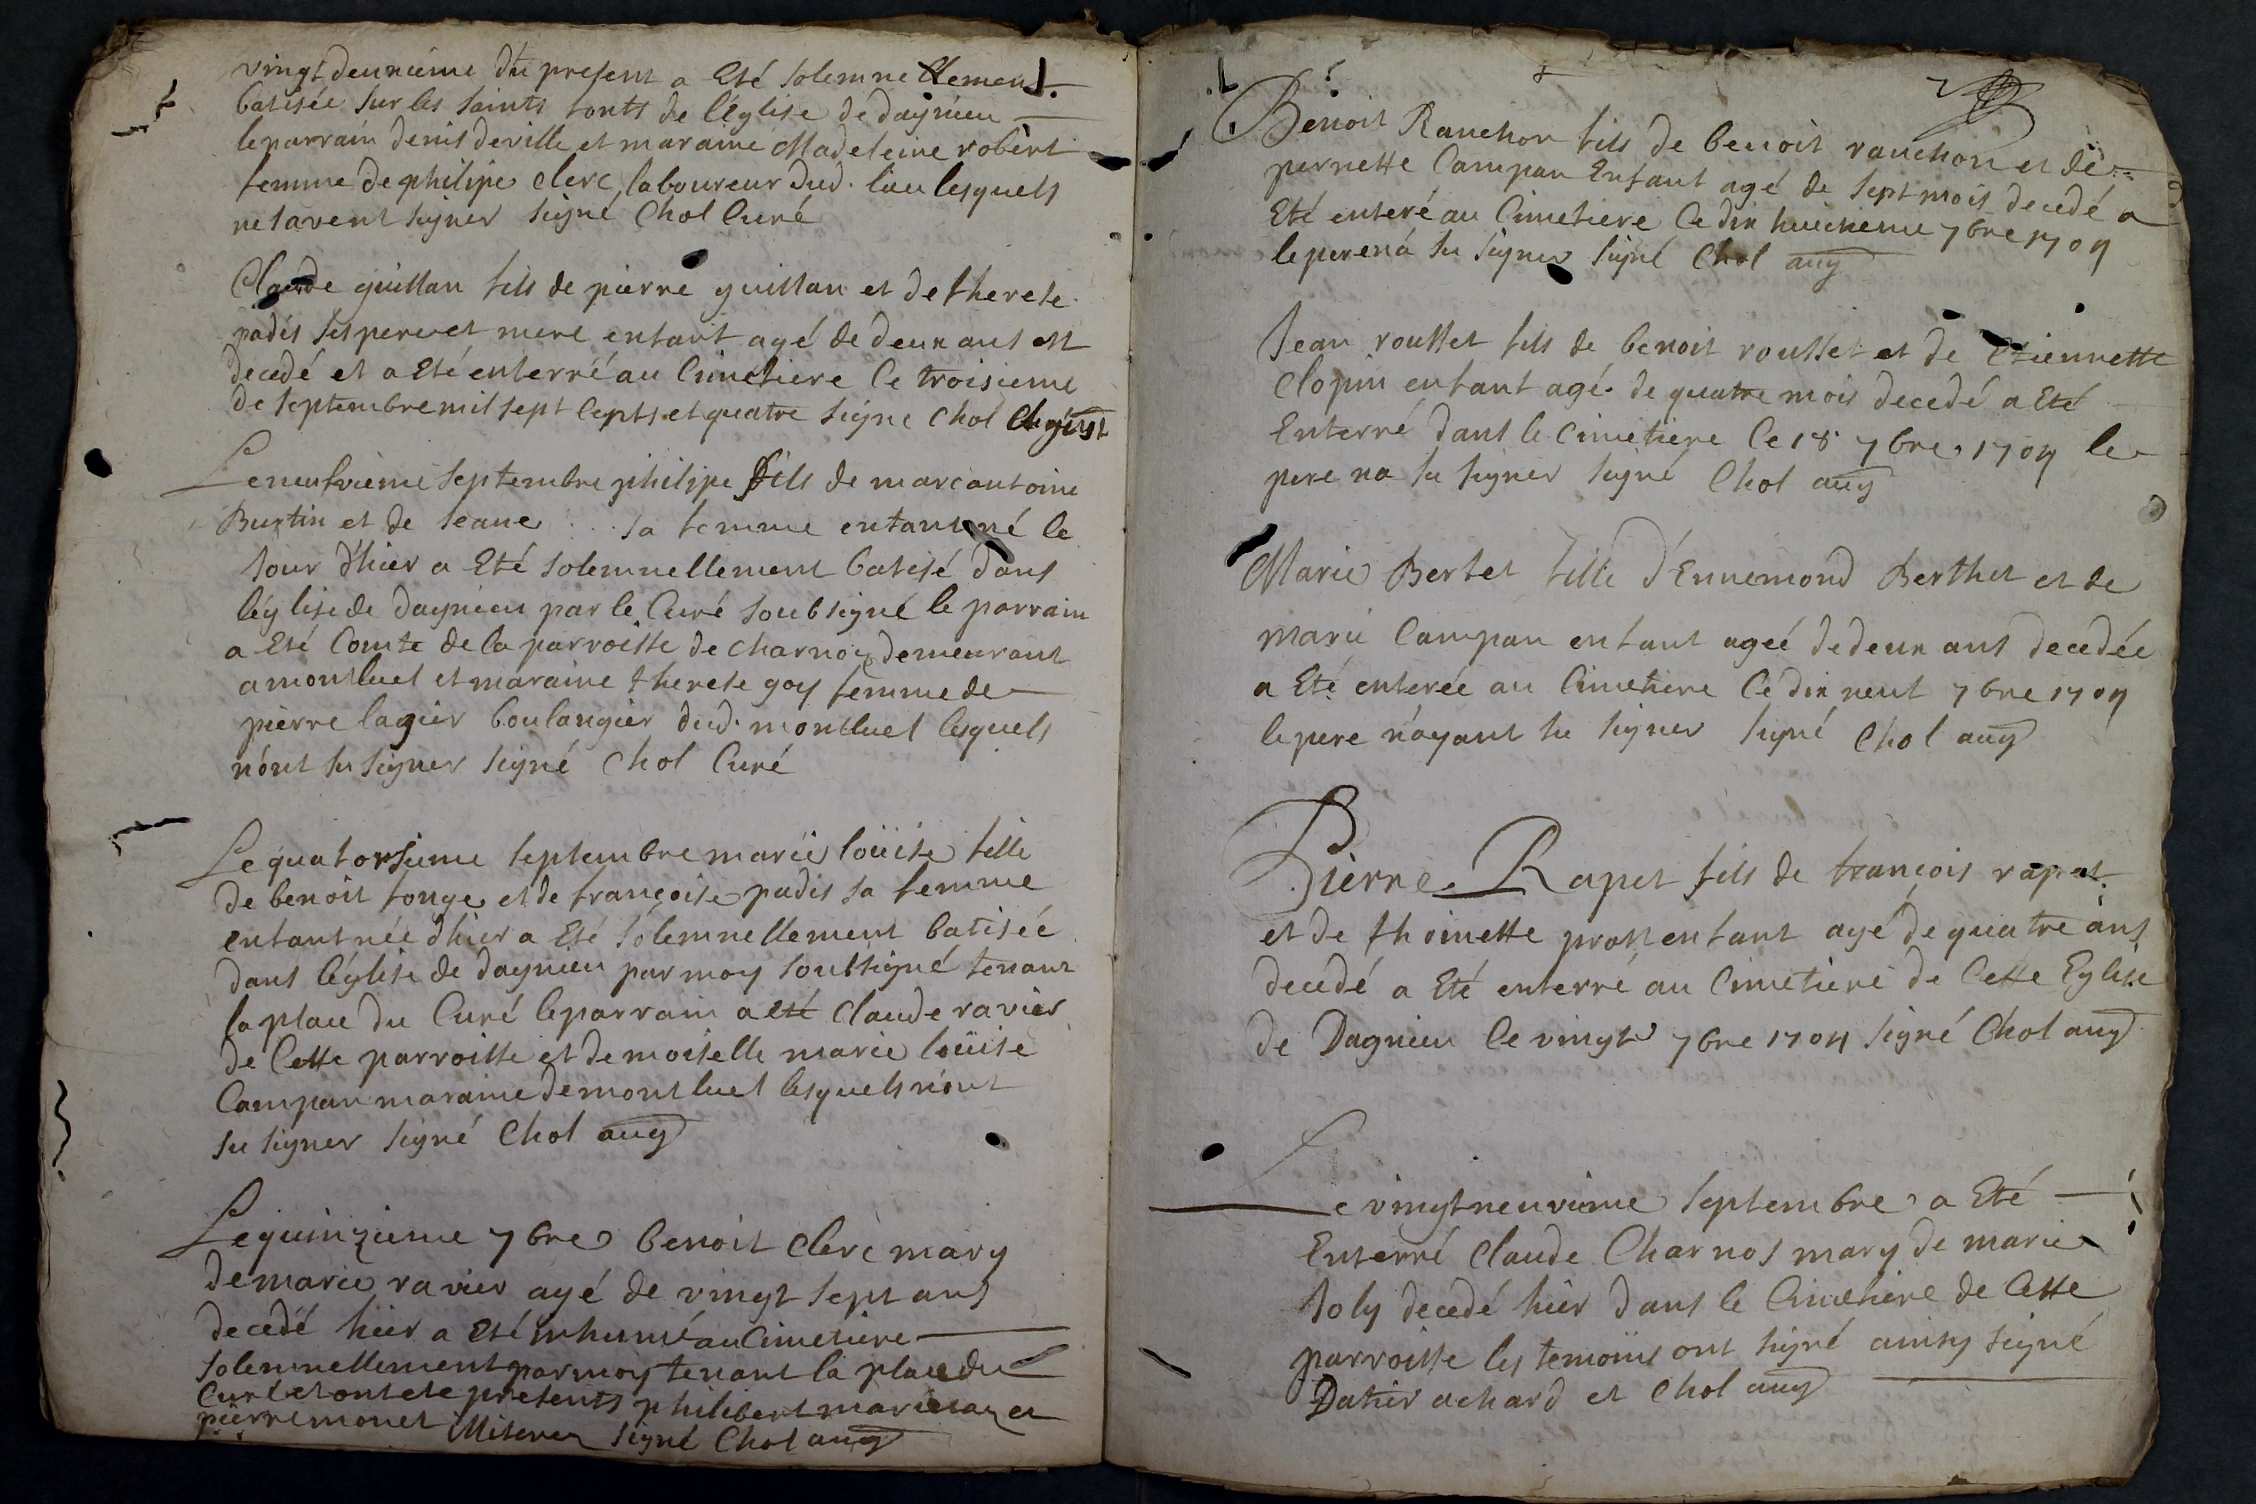 vingt deuxiéme du present a Eté solemnellement
batisée sur les saints fonts de l'église de dagnieu
le parrain denis deville et maraine Madeleine robert
femme de philipe clerc laboureur dud. lieu lesquels
ne savent signer signé Chol Curé
Claude guillan fils de pierre guillan et de therese
padis ses pere et mere enfant agé de deux ans est
decedé et a Eté enterré au Cimetiere le troisieme
de septembre mil sept cents et quatre signe Chol
Le neufvieme septembre philipe fils de marc antoine
Burtin et de Jeane ... sa femme enfant né le
Jour d'hier a Eté solemnellement batisé dans
léglise de dagnieu par le Curé soubsigné le parrain
a Eté Comte de la parroisse de charnoz demeurant
a montluel et maraine therese goy femme de
pierre lagier boulangier dud. montluel lesquels
n'ont su signer signé Chol Curé
Le quatorsieme septembre marie loüise fille
de benoit fonge et de françoise padis sa femme
enfant née d'hier a Eté solemnellement batisée
dans l'église de dagnieu par moy soubsigné tenant
la place du Curé le parrain a eté claude ravier
de Cette parroisse et demoiselle marie loüise
Campan maraine de montluel lesquels n'ont
su signer signé Chol aug
Le quinzieme 7bre benoit clerc mary
de marie ravier agé de vingt sept ans
decedé hier a Eté inhumé au Cimetiere
solemnellement par moy tenant la place du
Curé et ont ete presents philibert et
pierre monet signé Chol aug
Benoit Ranchon fils de benoit ranchon et de
pernette Campan Enfant agé de sept mois decedé a
Eté enteré au Cimetiere Ce dix huictieme 7bre 1704
le pere n'a su signer signé Chol aug
Jean rousset fils de benoit rousset et de Etiennette
Clopin enfant agé de quatre mois decedé a Eté
Enterré dans le Cimetiere le 18 7bre 1704 le
pere na su signer signé Chol aug
Marie Bertet fille d'Ennemond Berthet et de
marie Campan enfant ageé de deux ans decedée
a Eté enterée au Cimetiere Ce dix neuf 7bre 1704
le pere n'ayant su signer signé Chol aug
Pierre Rapet fils de françois rapet
et de thoinette prost enfant agé de quatre ans
decedé a Eté enterré au Cimetiere de Cette Eglise
de Dagnieu le vingt 7bre 1704 signé Chol aug
Le vingt neuvieme septembre a Eté
Enterré claude Charnos mary de marie
Joly decedé hier dans le Cimetiere de Cette
parroisse les temoins ont signé ainsy signé
achard et Chol aug